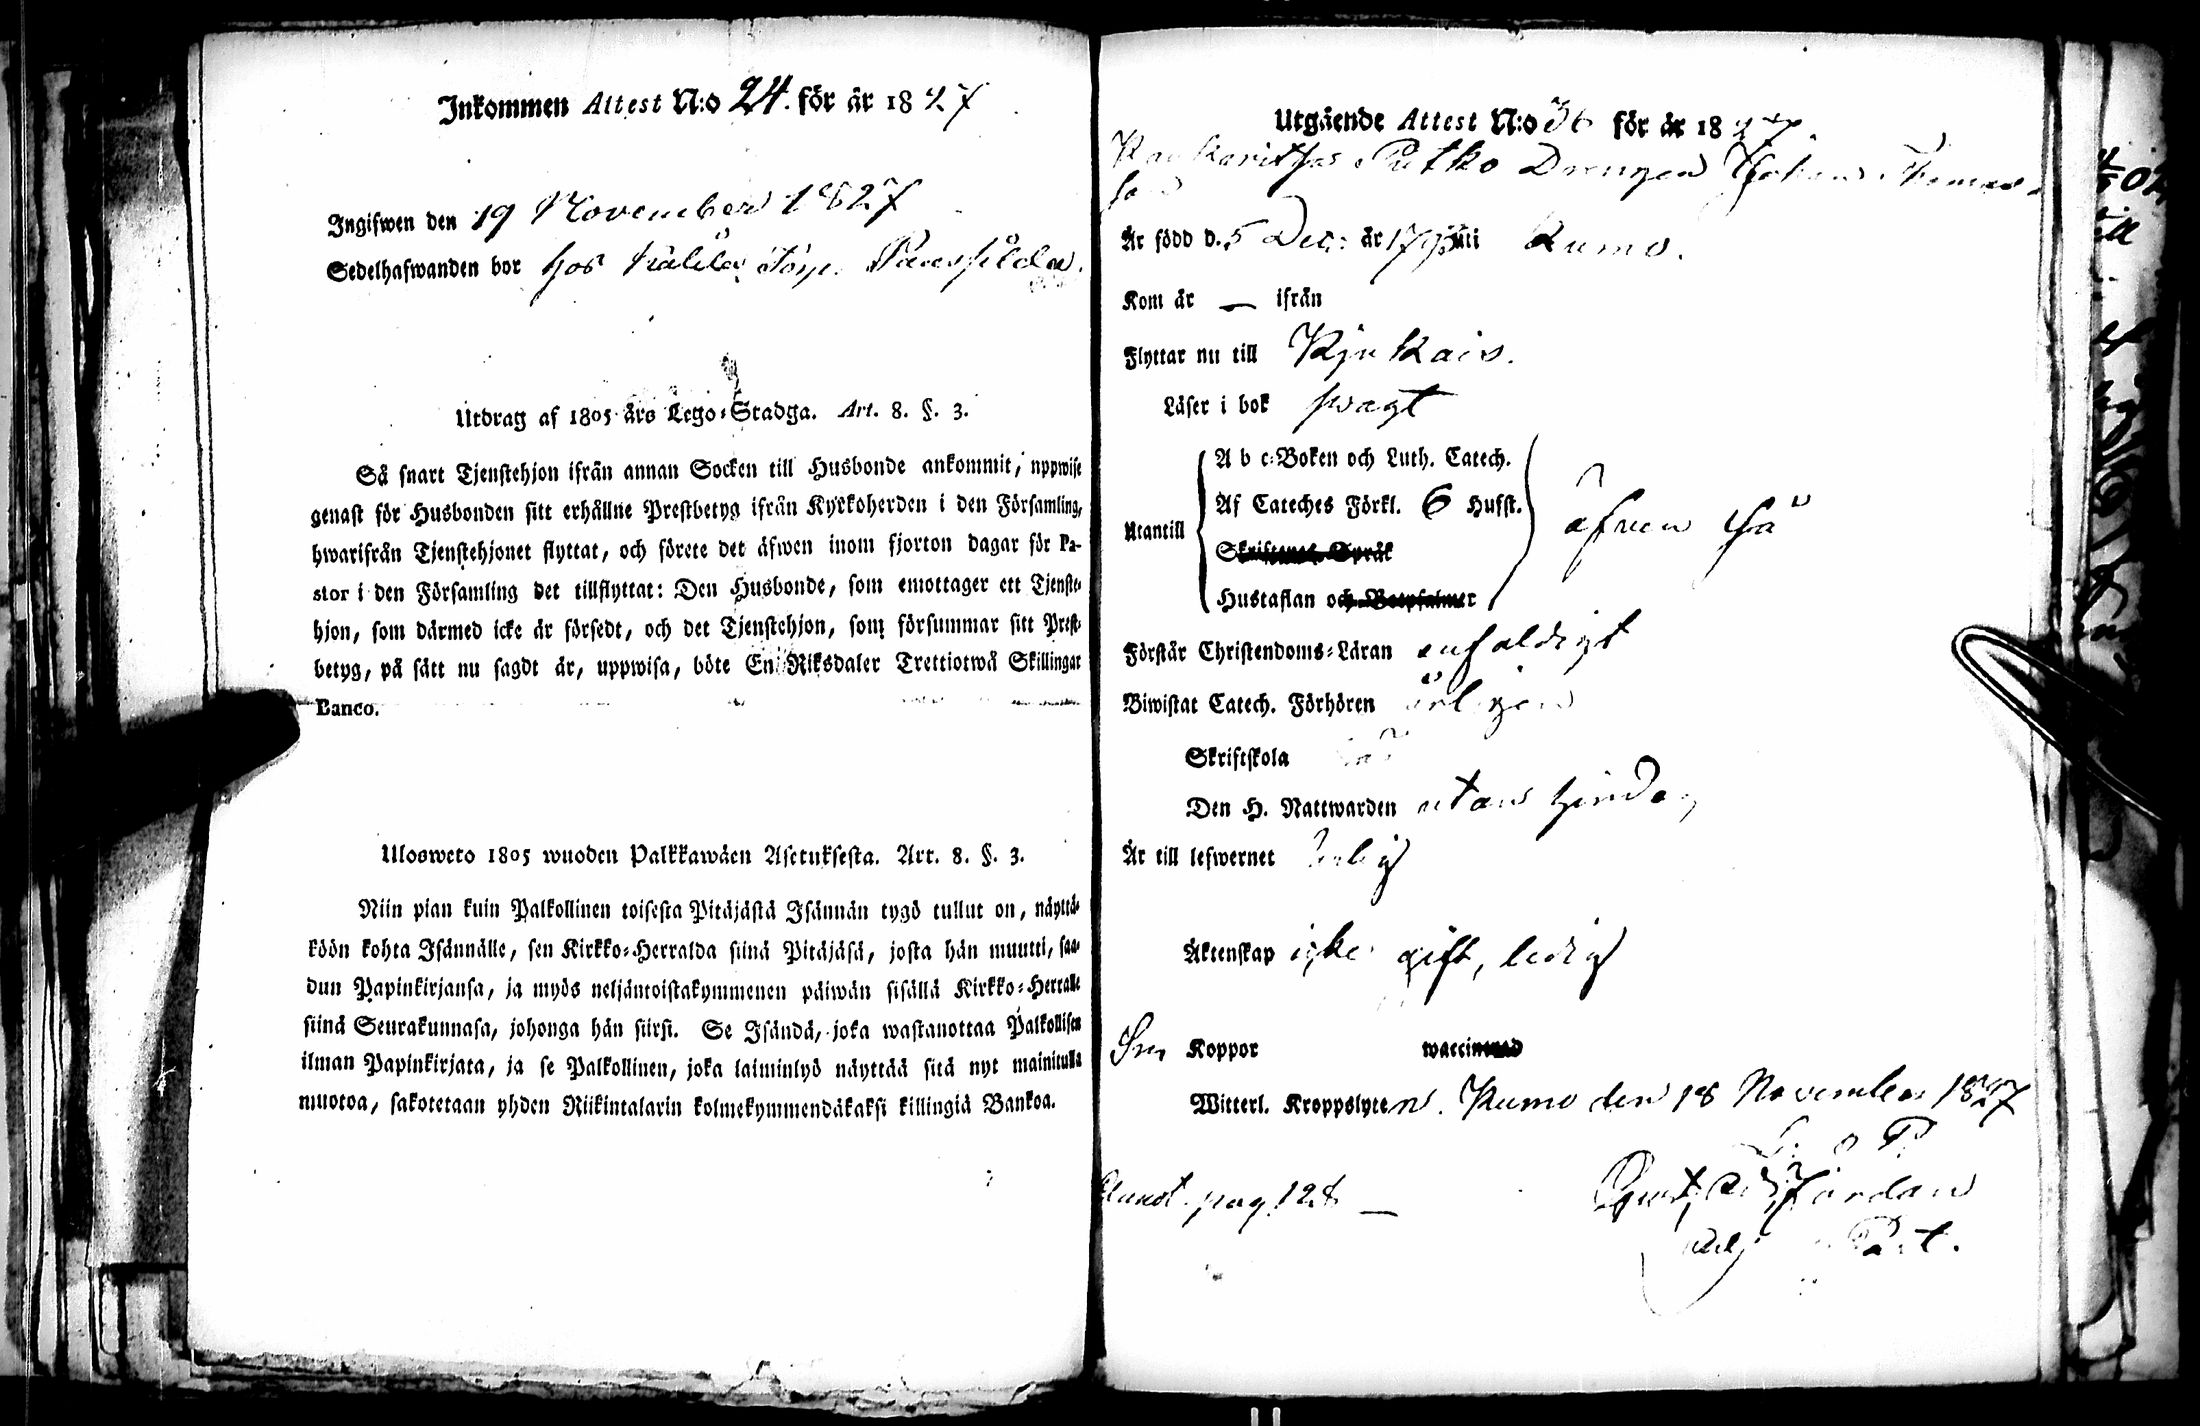 Inkommen Attest N:o 24. för år 1827
Ingifwen den 19 November 1827
Sedelhafwanden bor hos
Utdrag af 1805 års Lego-Stadga. Art. 8. §. 3.
Så snart Tjenstehjon ifrån annan Socken till Husbonde ankommit, uppwise
genast för Husbonden sitt erhållne Prestbetyg ifrån Kyrkoherden i den Församling,
hwarifrån Tjenstehjonet flyttat, och förete det äfwen inom fjorton dagar för Pa-
stor i den Församling det tillflyttat: Den Husbonde, som emottager ett Tjenste-
hjon, som därmed icke är försedt, och det Tjenstehjon, som försummar sitt Prest-
betyg, på sätt nu sagdt är, uppwisa, böte En Riksdaler Trettiotwå Skillingar
Banco.
Ulosweto 1805 wuoden Palkkawäen Asetuksesta. Art. 8. §. 3.
Niin pian kuin Palkollinen toisesta Pitäjästä Isännän tygö tullut on, näyttä-
köön kohta Isännälle, sen Kirkko-Herralda siinä Pitäjäsä, josta hän muutti, saa-
dun Papinkirjansa, ja myös neljäntoistakymmenen päiwän sisällä Kirkko-Herralle
siinä Seurakunnasa, johonga hän siirsi. Se Isändä, joka wastanottaa Palkollisen
ilman Papinkirjata, ja se Palkollinen, joka laiminlyö näyttää sitä nyt mainitulla
muotoa, sakotetaan yhden Riikintalarin kolmekymmendäkaksi killingiä Bankoa.
Utgående Attest N:o 36 för år 1827
Putko Drengen Johan Thomas-
son
Är född d. 5 Dec: år 1795 uti Kumo.
Kom år — ifrån
Flyttar nu till Kjukais.
Läser i bok swagt
A b c-Boken och Luth. Catech.
Af Cateches Förkl. 6 Hufst.
Utantill äfwen så
Skriftenes Språk
Hustaflan och Botpsalmer
Förstår Christendoms-Läran enfaldigt
Biwistat Catech. Förhören årligen
Skriftskola
Den H. Nattwarden utan hinder
Är till lefwernet ärlig
Äktenskap icke gift, ledig
Koppor waccinerad
Witterl. Kroppslyten. Kumo den 18 November 1827
pag. 128 —
Past.